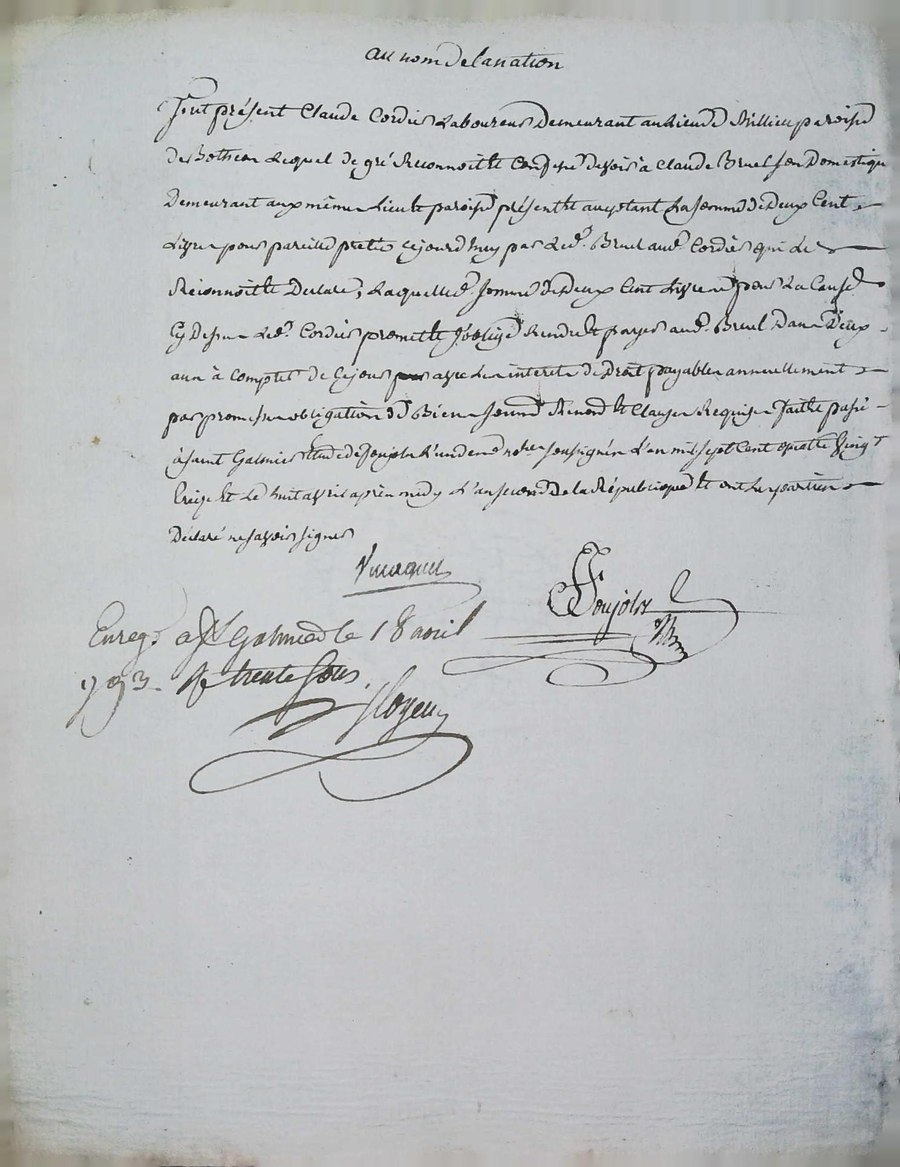 au nom de la nation
Fut présent Claude Cordier Laboureur Demeurant au Lieu de paroisse
de Bothéon Lequel de gré Reconnoit et Confesse devoir à Claude Bruel son Domestique
Demeurant aux même Lieu et paroisse présent et acceptant La somme de Deux Cent
Livres pour pareille prettée cejourd'huy par Led. Bruel aud. Cordier qui Le
Reconnoit et Declare, Laquelle d. somme de Deux Cent Livres pour La Cause
Cy Dessus Led. Cordier promet et s'oblige Rendre et payer aud. Bruel Dans Deux
ans à Compter de Cejour avec Les interets de Droit payables annuellement
par promesse obligation de Biens soumd. Renond. et Clauses Requises fait et passé
à Saint Galmier Etude de Soujols L'un des notres soussignés L'an mil sept Cent quatre Vingt
treize et Le huit avril après midy L'an second De La République et ont Les parties
Déclaré ne savoir signer
Soujols
Enreg. à St Galmier le 18 avril
1793. R trente sous.